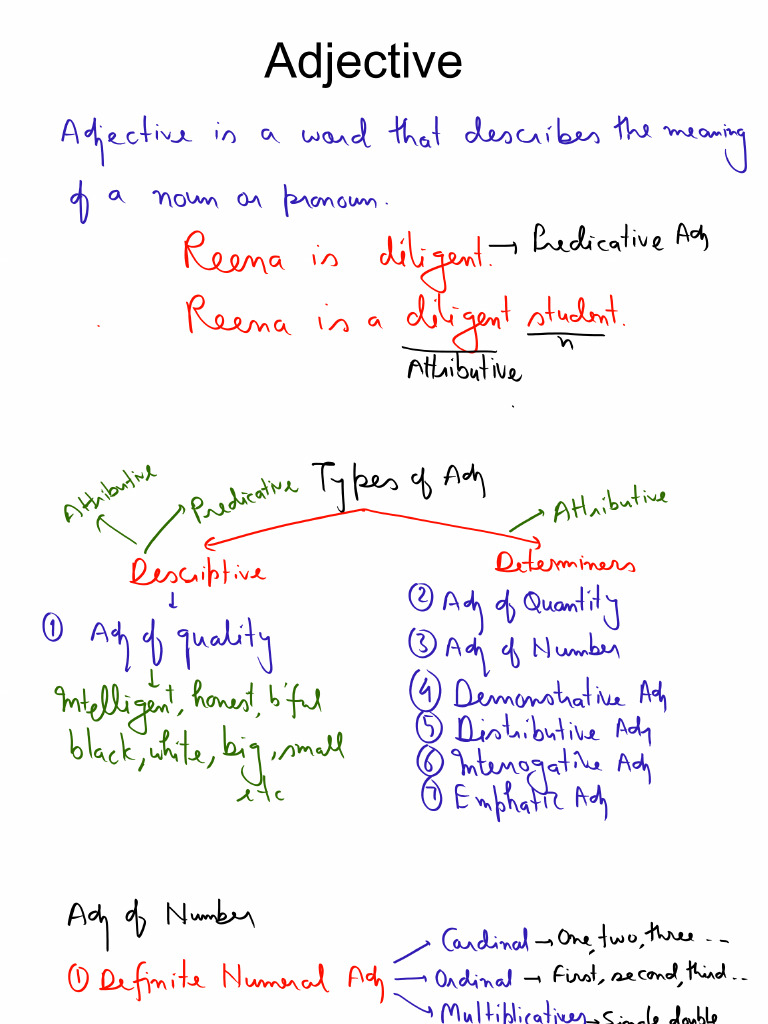 Adjective
Adjective is a word that describes the meaning
of a noun or pronoun.
Reena is diligent. → Predicative Adj
Reena is a diligent student.
n
Attributive
Types of Adj
Attributive
Predicative
Attributive
Descriptive
Determiners
① Adj of quality
Intelligent, honest, b'ful
black, white, big, small
etc
② Adj of Quantity
③ Adj of Number
④ Demonstrative Adj
⑤ Distributive Adj
⑥ Interrogative Adj
⑦ Emphatic Adj
Adj of Number
① Definite Numeral Adj
Cardinal → One, two, three --
Ordinal → First, second, third --
Multiplicatives → Single, double